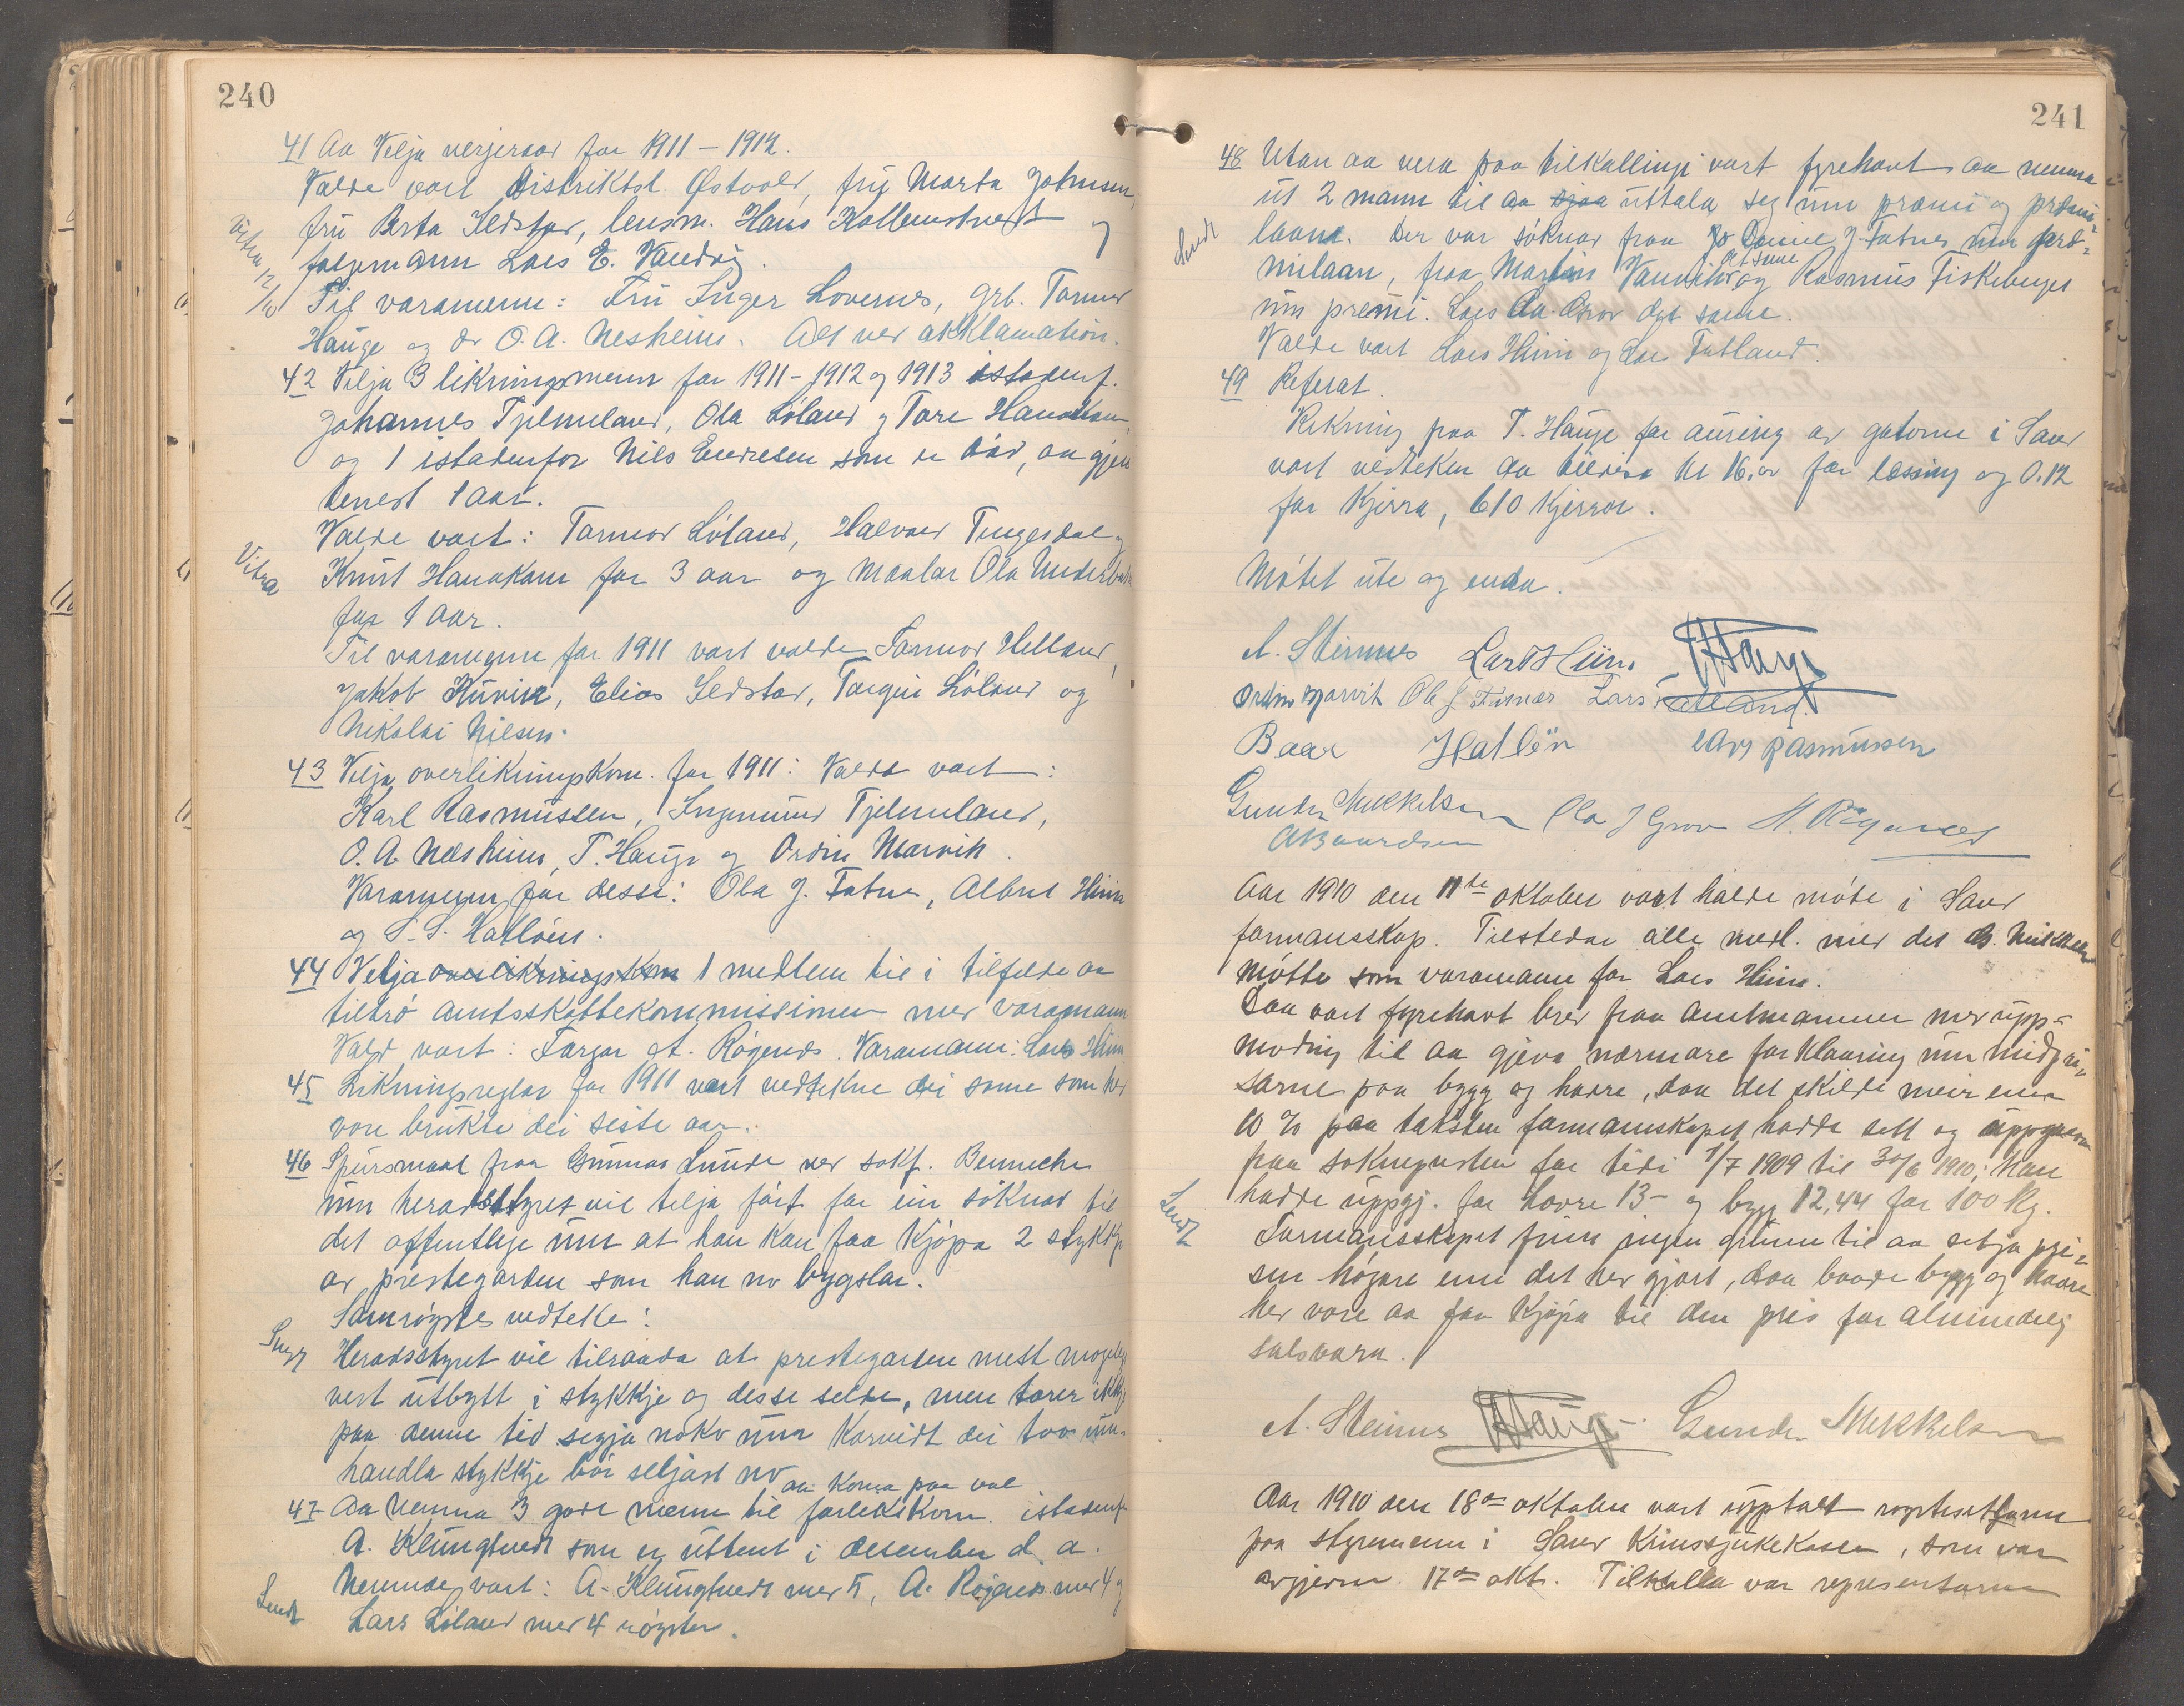 240
41 Aa Velja verjeraad for 1911 – 1912.
Valde vart Distriktsl. Østvold, fru Marta Johnsen,
fru Berta Sedstad, lensm. Hans Kallemtvedt og
formann Lars E. Vandvig.
Vitra 12/10
Til varamenn: Fru Inger Lovernes, grb. Tormod
Hauge og dr O. A. Nesheim. Alt ved akklamation.
42 Velja 3 likningsmenn for 1911 – 1912 og 1913 istadenf.
Johannes Tjelmeland, Ola Løland og Tore Hanakam,
og 1 istadenfor Nils Endresen som er död, aa gjera
tenest 1 aar.
Valde vart: Tormod Løland, Halvard Tengesdal og
Vitra
Knut Hanakam for 3 aar og maalar Ola
for 1 aar.
Til varamenn for 1911 vart valde Tormod Helland,
Jakob Hüvik, Elias Sedstad, Torger Løland og
Nikolai Nilsen.
43 Velja overlikningskom. for 1911: Valde vart:
Karl Rasmussen, Ingemund Tjelmeland,
O. A. Nesheim, T. Hauge og Ordin Marvik.
Varamenn for desse: Ola J. Fatnes, Albert Hiim
og S. S. Hatløin.
44 Velja overlikningskom 1 medlem til i tilfelde aa
tiltrø amtsskattekommissionen med varamann
Vald vart: Torger A. Røgenes. Varamann: Lars Hiim
45 Likningsreglar for 1911 vart vedtekne dei same som her
vore brukte dei siste aar.
46 Spursmaal fraa Gunnar Lunde ved sokf. Bennecke
um heradsstyret vil telja fört for ein söknad til
det offentlege um at han kan faa kjöpa 2 stykkje
av prestegarden som han no bygslar.
Samröystes vedteke:
Heradsstyret vil tilraada at prestegarden mest mogeleg
vert utbytt i stykkje og desse selde, men torer ikkje
paa denne tid segja noko um korvidt dei tvo um-
handla stykkje bör seljast no aa koma paa val
47 Aa nemna 3 gode menn til forlikskom. istadenf
A. Klungtvedt som er uttent i desember d. a.
Nemnde vart: A. Klungtvedt med 5, A. Røgenes med 4 og
Sendt
Lars Løland med 4 röyster.
241
48 Utan aa vera paa tilkallingi vart fyrehavt aa nemna
ut 2 mann til aa sjaa uttala seg um premi og premi-
Sendt
laane. Der var söknad fraa Jo Daniel J. Fatnes um jord-
det same
milaan, fraa Martin Vannvik og Rasmus Fiskeberget
um premi. Lars Aa. Grov det same.
Valde vart Lars Hiim og Lars Fatland.
49 Referat.
Rekning fraa T. Hauge for auring av gatorne i Sand
vart vedteken aa utbetala kr 16.00 for læssing og 0.12
for kjerra, 610 kjerror.
Mötet ute og enda.
A. Steinnes Lars Hiim T Hauge
Ordin Marvik Ola J. Fatnes Lars Fatland.
Baar Hatløin Lars Rasmussen
Gunder Mikkelsen Ola J Grov A. Røgenes
A Baardsen
Aar 1910 den 11te oktober vart halde möte i Sand
formansskap. Tilstedar alle medl. med det G. Mikkelsen
mötte som varamann for Lars Hiim.
Daa vart fyrehavt brev fraa amtmannen med upp-
moding til aa gjeva nærmare forklaaring um midpri-
sarne paa bygg og havre, daa det skilde meir enn
10 % paa taksten formanskapet hadde sett og uppgaava
fraa soknepresten for tidi 1/7 1909 til 30/6 1910; han
hadde uppgj. for havre 13– og bygg 12,44 for 100 kg.
Sendt
Formansskapet finn ingen grunn til aa setja pri-
sen högare enn det her gjort, daa baade bygg og havre
her vore aa faa kjöpa til den pris for almindeleg
salsvara.
A. Steinnes T Hauge Gunder Mikkelsen
Aar 1910 den 18de oktober vart upptalt
paa styremenn i Sand Krinssjukekasse, som var
avgjevne 17de okt. Tilkalla var representarne